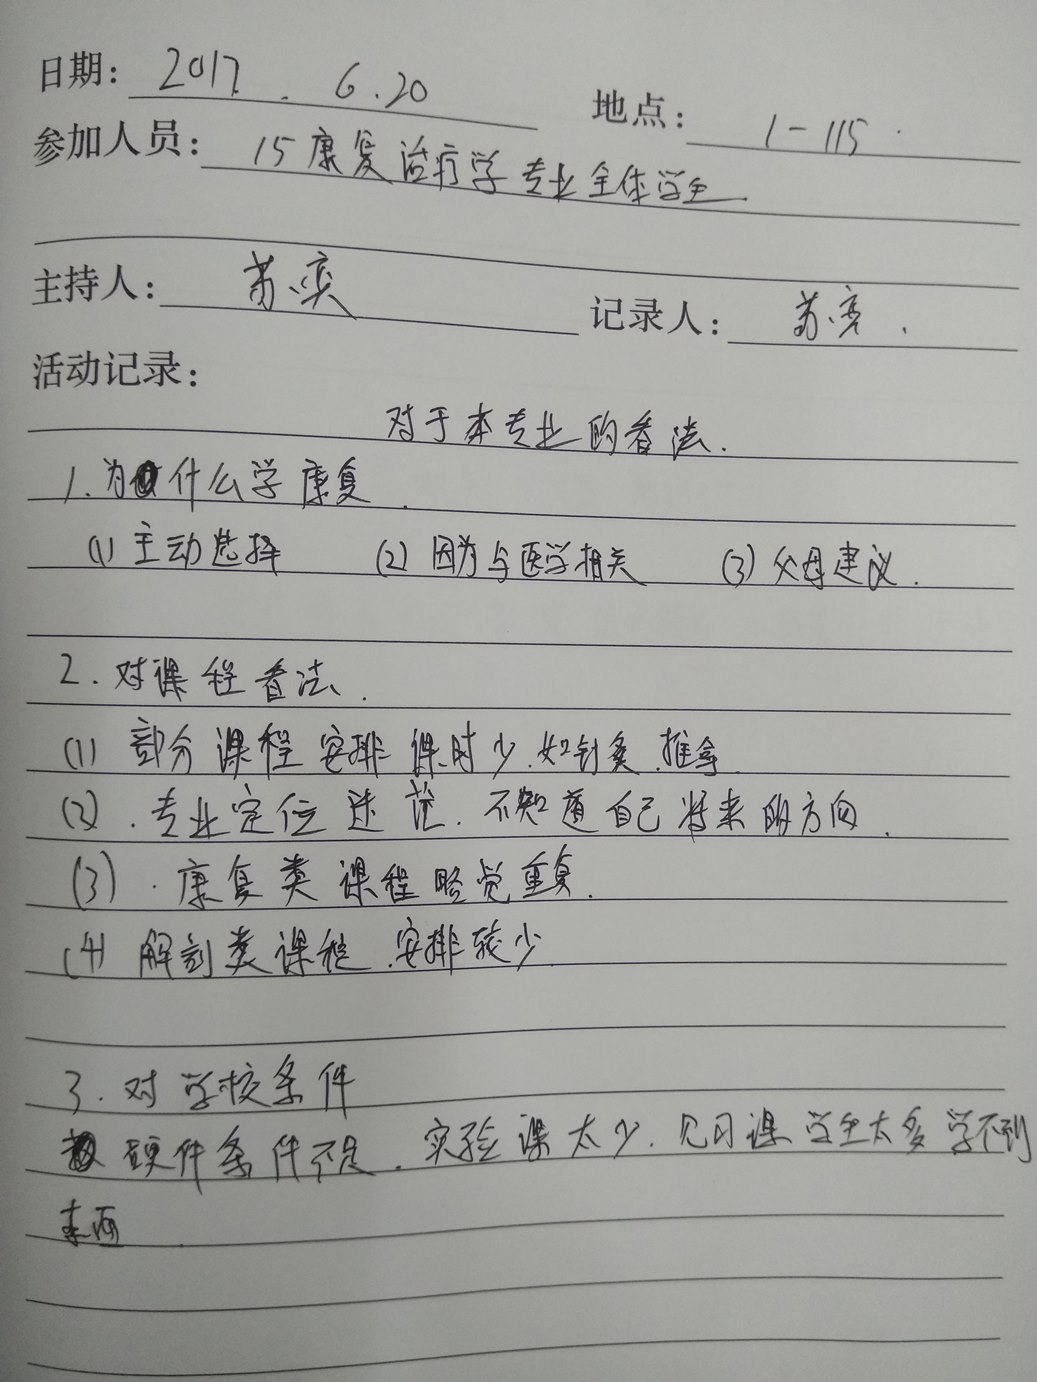 日期: 2017. 6.20 地点: 1-115.
参加人员: 15康复治疗学专业全体学生.
主持人: 苏奕 记录人: 苏奕.
活动记录:
对于本专业的看法.
1.为什么学康复.
(1)主动选择 (2)因为与医学相关 (3)父母建议.
2.对课程看法.
(1)部分课程安排课时少.如针灸.推拿
(2).专业定位迷茫.不知道自己将来的方向.
(3).康复类课程略觉重复.
(4)解剖类课程.安排较少
3.对学校条件
硬件条件不足.实验课太少.见习课学生太多学不到
东西.